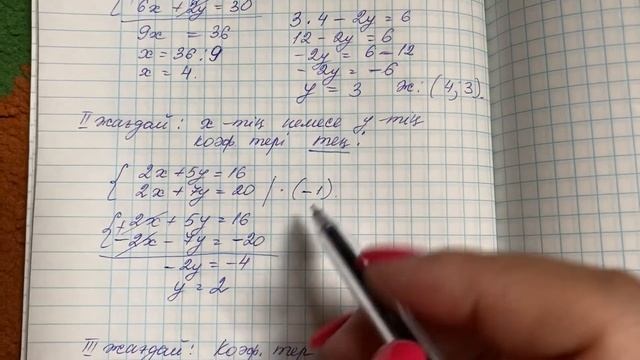 6x + 2y = 30
9x = 36
x = 36 : 9
x = 4.
3·4 – 2y = 6
12 – 2y = 6
– 2y = 6 – 12
– 2y = –6
y = 3 Ж: (4; 3).
II жағдай: x -тің немесе y -тің
коэф. тері тең:
2x + 5y = 16
2x + 7y = 20 / · (–1).
+ 2x + 5y = 16
– 2x – 7y = –20
– 2y = –4
y = 2
III жағдай: Коэф. тер